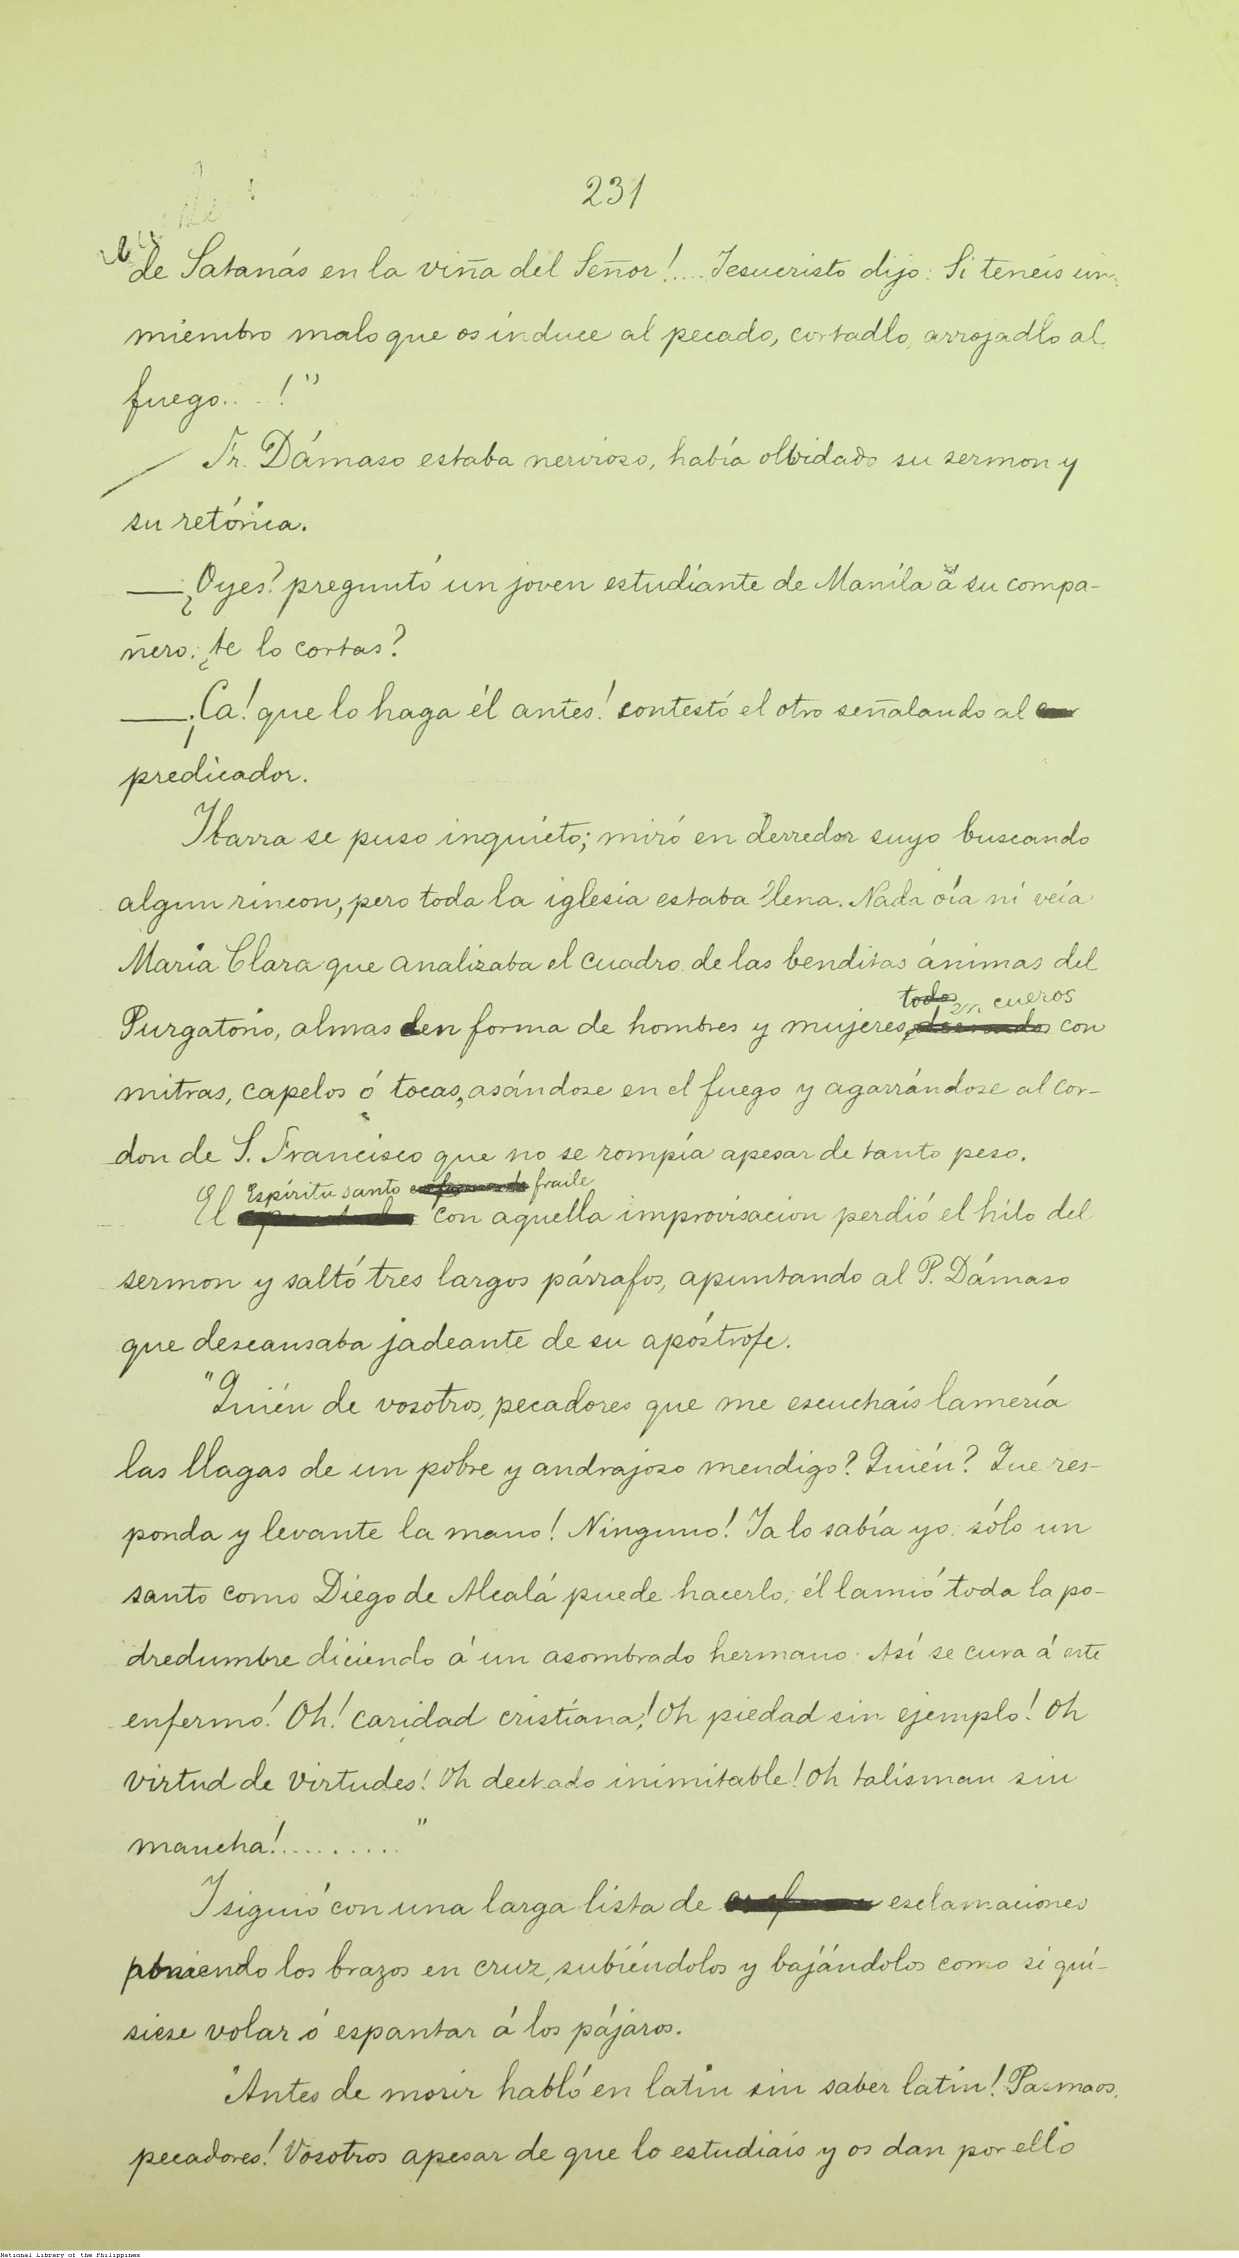 231
de Satanás en la viña del Señor!.... Jesucristo dijo: Si teneis un
miembro malo que os induce al pecado, cortadlo, arrojadlo al
fuego....!"
Fr. Dámaso estaba nervioso, había olvidado su sermon y
su retórica.
—¿Oyes? preguntó un joven estudiante de Manila á su compa-
ñero: ¿te lo cortas?
—¡Ca! que lo haga él antes! contestó el otro señalando al
predicador.
Ibarra se puso inquieto; miró en derredor suyo buscando
algun rincon, pero toda la iglesia estaba llena. Nada oía ni veía
María Clara que analizaba el cuadro de las benditas ánimas del
todos en cueros
Purgatorio, almas en forma de hombres y mujeres, con
mitras, capelos ó tocas, asándose en el fuego y agarrándose al cor-
don de S. Francisco que no se rompía apesar de tanto peso.
Espíritu santo fraile
El con aquella improvisacion perdió el hilo del
sermon y saltó tres largos párrafos, apuntando al P. Dámaso
que descansaba jadeante de su apóstrofe.
"Quién de vosotros, pecadores que me escuchais lamería
las llagas de un pobre y andrajoso mendigo? Quién? Que res-
ponda y levante la mano! Ninguno! Ya lo sabía yo: sólo un
santo como Diego de Alcalá puede hacerlo; él lamió toda la po-
dredumbre diciendo á un asombrado hermano: Así se cura á este
enfermo! Oh! caridad cristiana! Oh piedad sin ejemplo! Oh
virtud de virtudes! Oh dechado inimitable! Oh talisman sin
mancha!.........."
Y siguió con una larga lista de esclamaciones
poniendo los brazos en cruz, subiéndolos y bajándolos como si qui-
siese volar ó espantar á los pájaros.
"Antes de morir habló en latin sin saber latin! Pasmaos,
pecadores! Vosotros apesar de que lo estudiais y os dan por ello
National Library of the Philippines